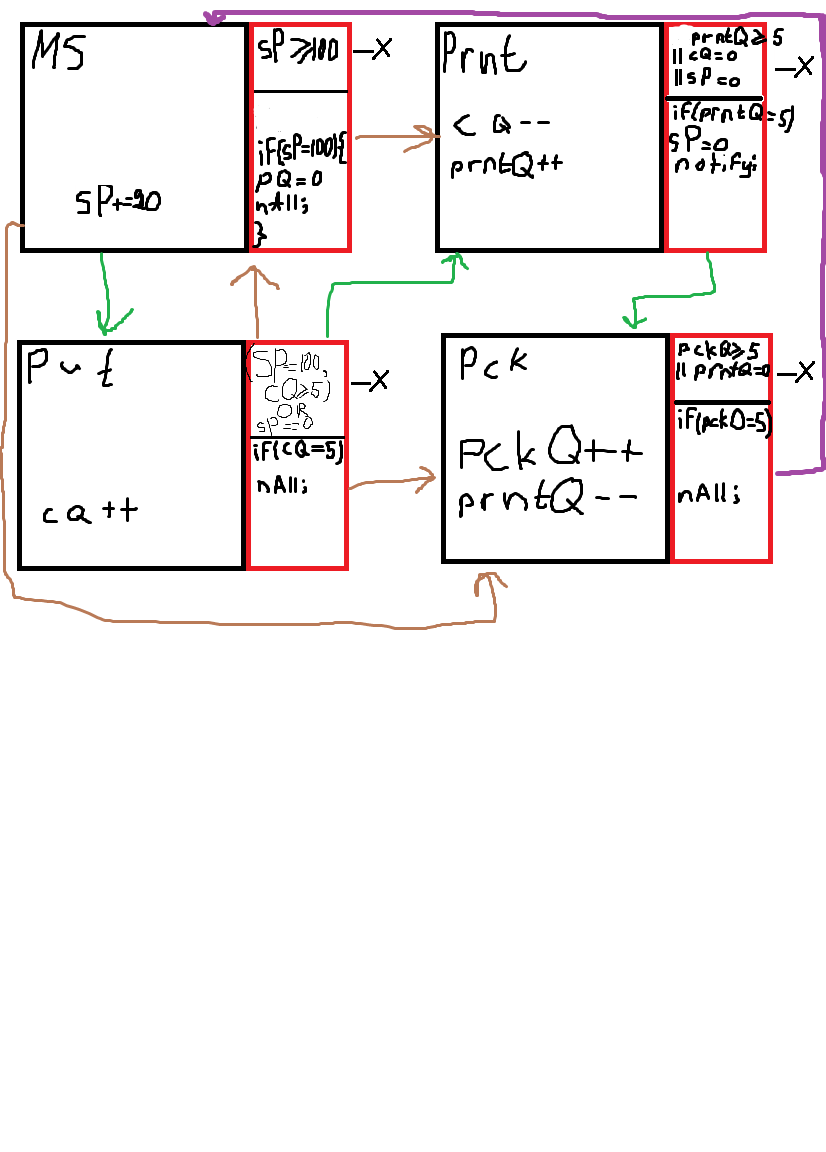 MS
sP+=20
sP≥100
—X
if(sP=100){
pQ=0
nAll;
}
Prnt
cQ--
prntQ++
prntQ≥5
||cQ=0
||sP=0
—X
if(prntQ=5)
sP=0
notify;
Put
cQ++
(SP=100,
cQ≥5)
OR
sP==0
—X
if(cQ=5)
nAll;
Pck
PckQ++
prntQ--
pckQ≥5
|| prntQ=0
—X
if(pckQ=5)
nAll;